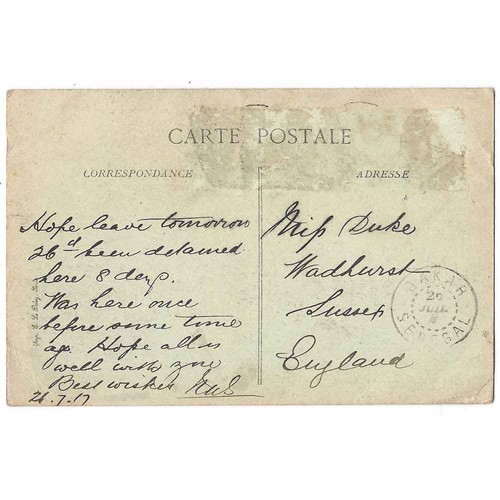 CARTE POSTALE
CORRESPONDANCE
ADRESSE
Hope leave tomorrow
26th been detained
here 8 days.
Was here once
before some time
ago. Hope all is
well with you
Best wishes
26.7.17
Miss Duke
Wadhurst
Sussex
England
DAKAR
26
JUIL
SENEGAL